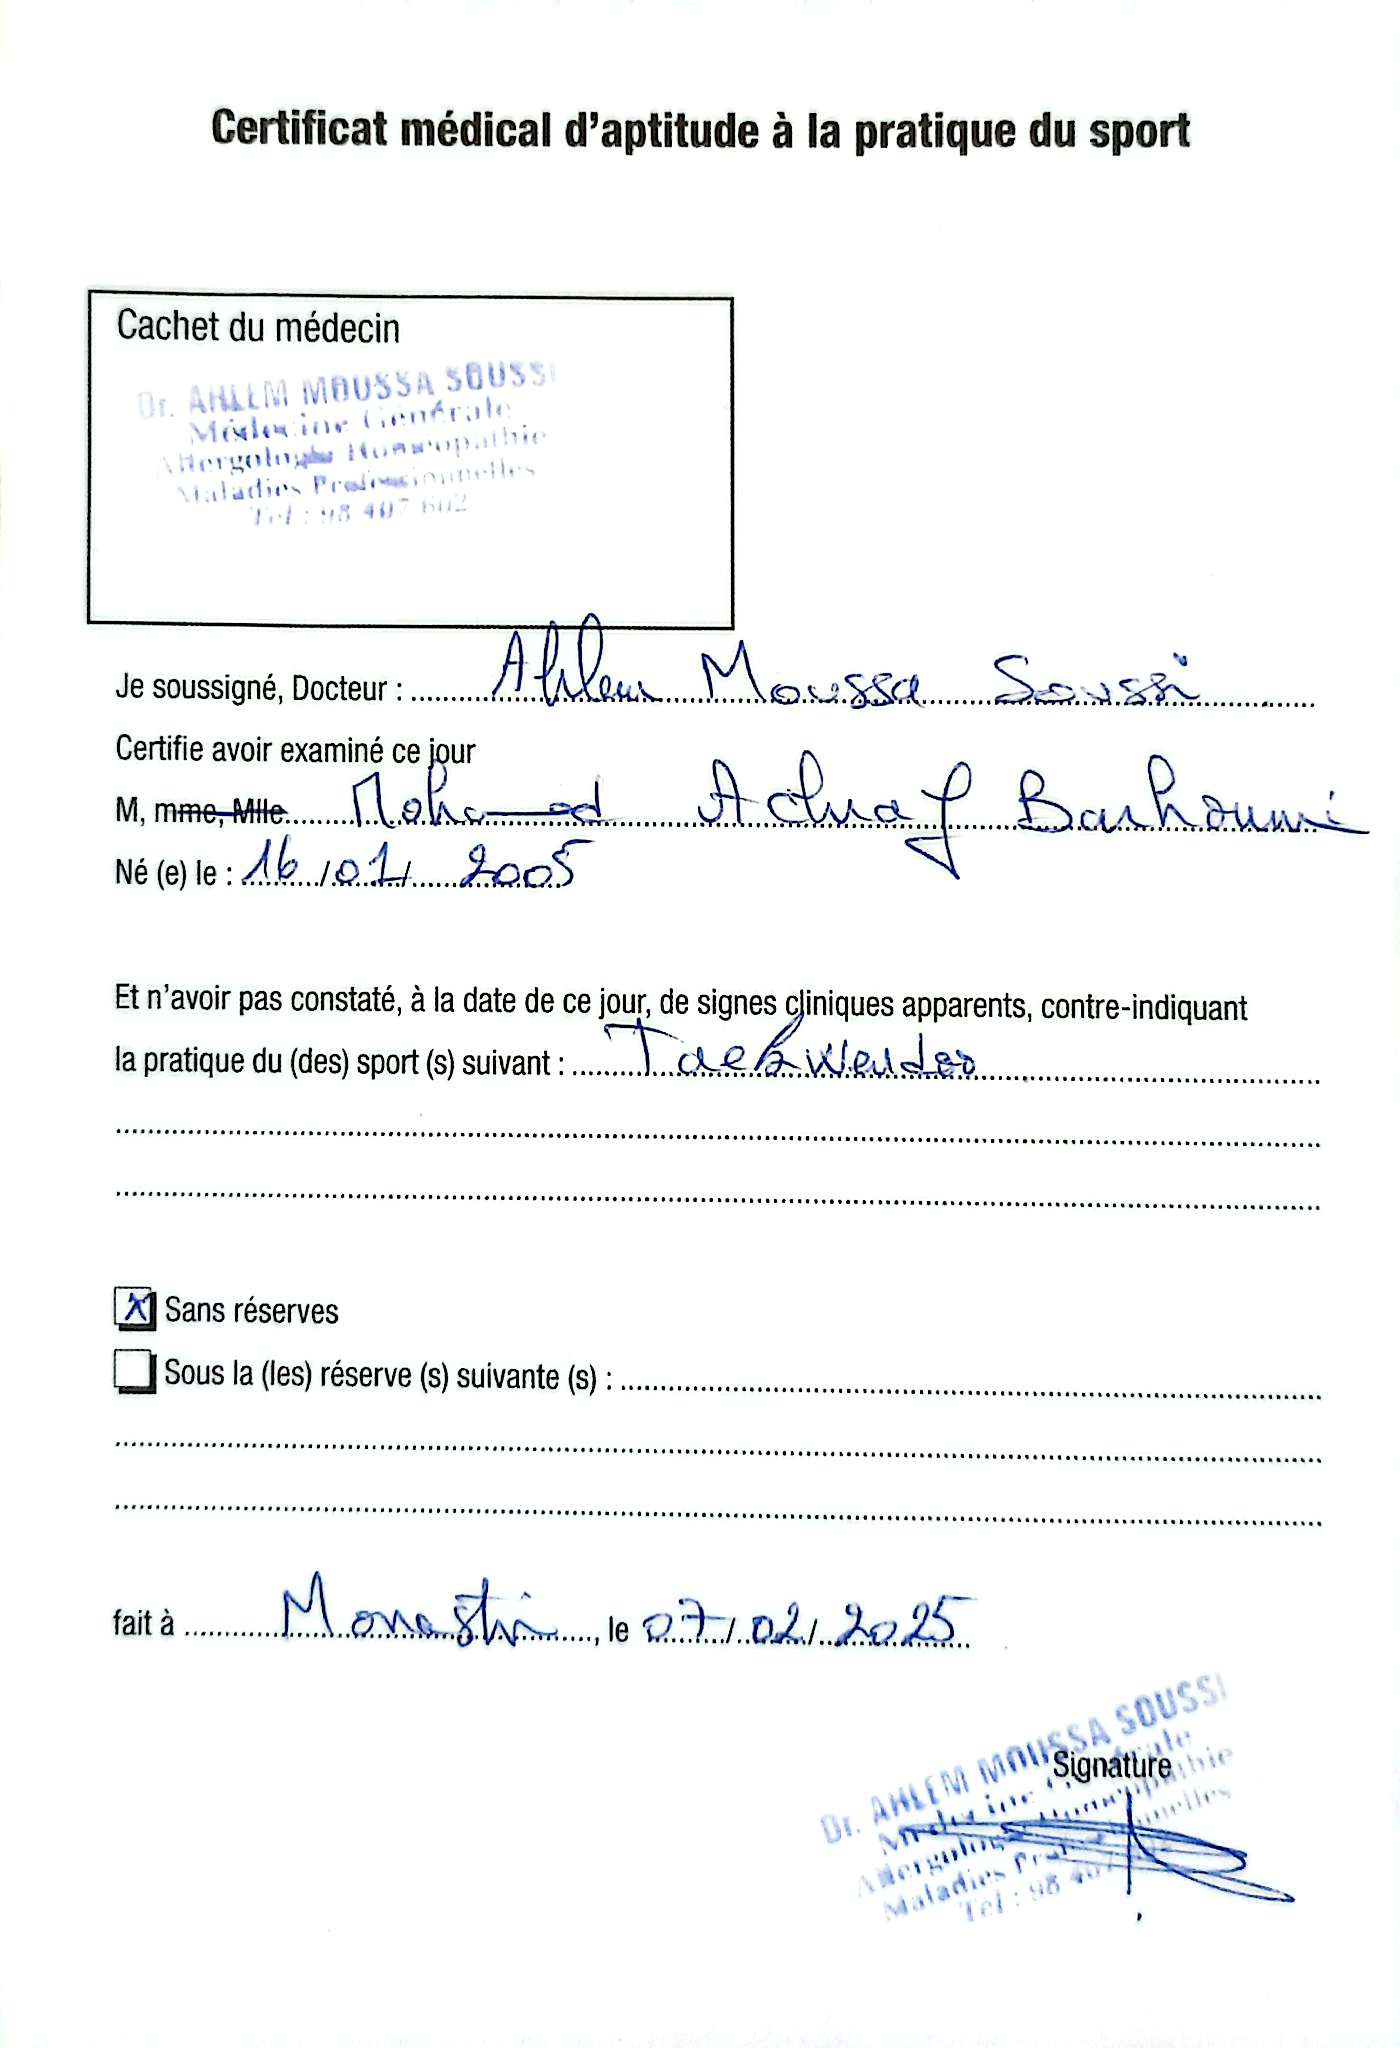 Certificat médical d'aptitude à la pratique du sport
Cachet du médecin
Dr. AHLEM MOUSSA SOUSSI
Médecine Générale
Allergologie Homoeopathie
Maladies Professionnelles
Tel : 98 407 602
Je soussigné, Docteur : Ahlem Moussa Soussi
Certifie avoir examiné ce jour
M, mme, Mlle Mohamed Achraf Barhoumi
Né (e) le : 16 /01/ 2005
Et n'avoir pas constaté, à la date de ce jour, de signes cliniques apparents, contre-indiquant
la pratique du (des) sport (s) suivant : Taekwendoo
X Sans réserves
Sous la (les) réserve (s) suivante (s) :
fait à Monastir, le 07/02/2025
Signature
Dr. AHLEM MOUSSA SOUSSI
Médecine Générale
Allergologie Homoeopathie
Maladies Professionnelles
Tel : 98 407